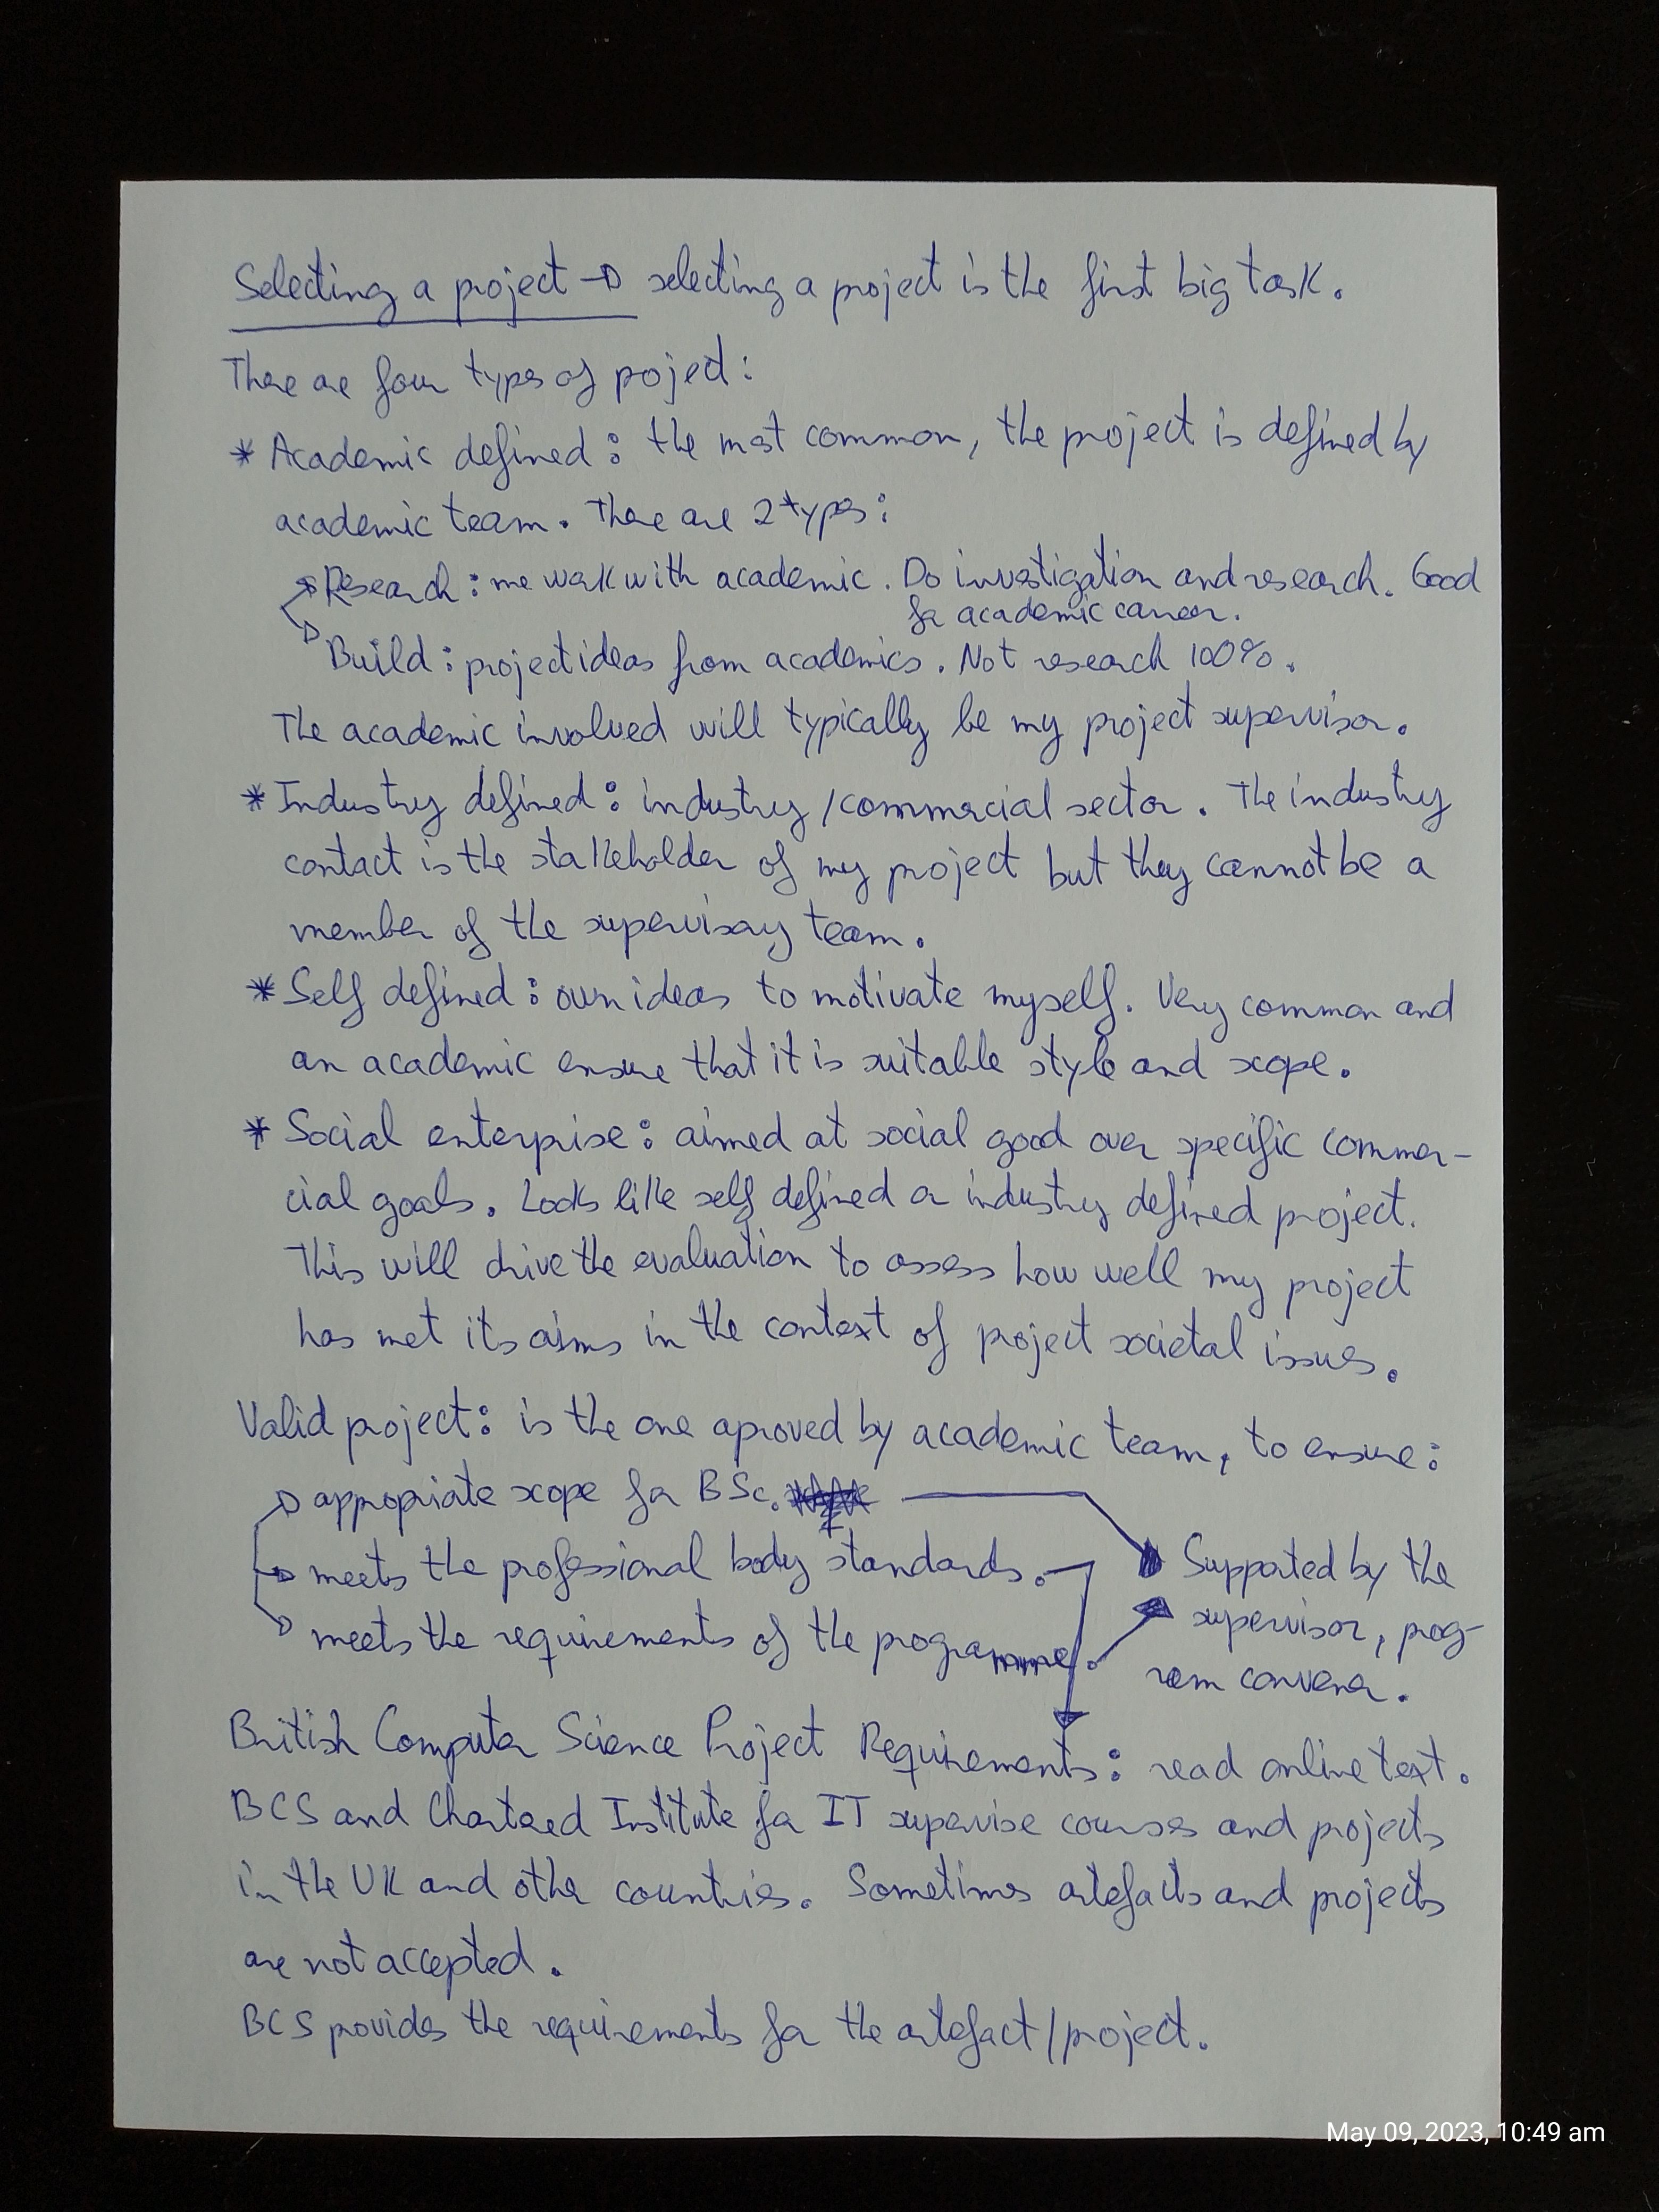 Selecting a project → selecting a project is the first big task.
There are four types of poject:
* Academic defined: the most common, the project is defined by
academic team. There are 2 types:
→ Research: me work with academic. Do investigation and research. Good
for academic career.
→ Build: project ideas from academics. Not research 100%.
The academic involved will typically be my project supervisor.
* Industry defined: industry/commercial sector. The industry
contact is the stakeholder of my project but they cannot be a
member of the supervisory team.
* Self defined: own ideas to motivate myself. Very common and
an academic ensure that it is suitable style and scope.
* Social enterprise: aimed at social good over specific commer-
cial goals. Looks like self defined or industry defined project.
This will drive the evaluation to assess how well my project
has met its aims in the context of project societal issues.
Valid project: is the one aproved by academic team, to ensure:
→ appropriate scope for BSc.
→ meets the professional body standards.
→ meets the requirements of the programme.
Supported by the
supervisor, prog-
ram convener.
British Computer Science Project Requirements: read online text.
BCS and Chartered Institute for IT supervise courses and projects
in the UK and other countries. Sometimes artefacts and projects
are not accepted.
BCS provides the requirements for the artefact/project.
May 09, 2023, 10:49 am